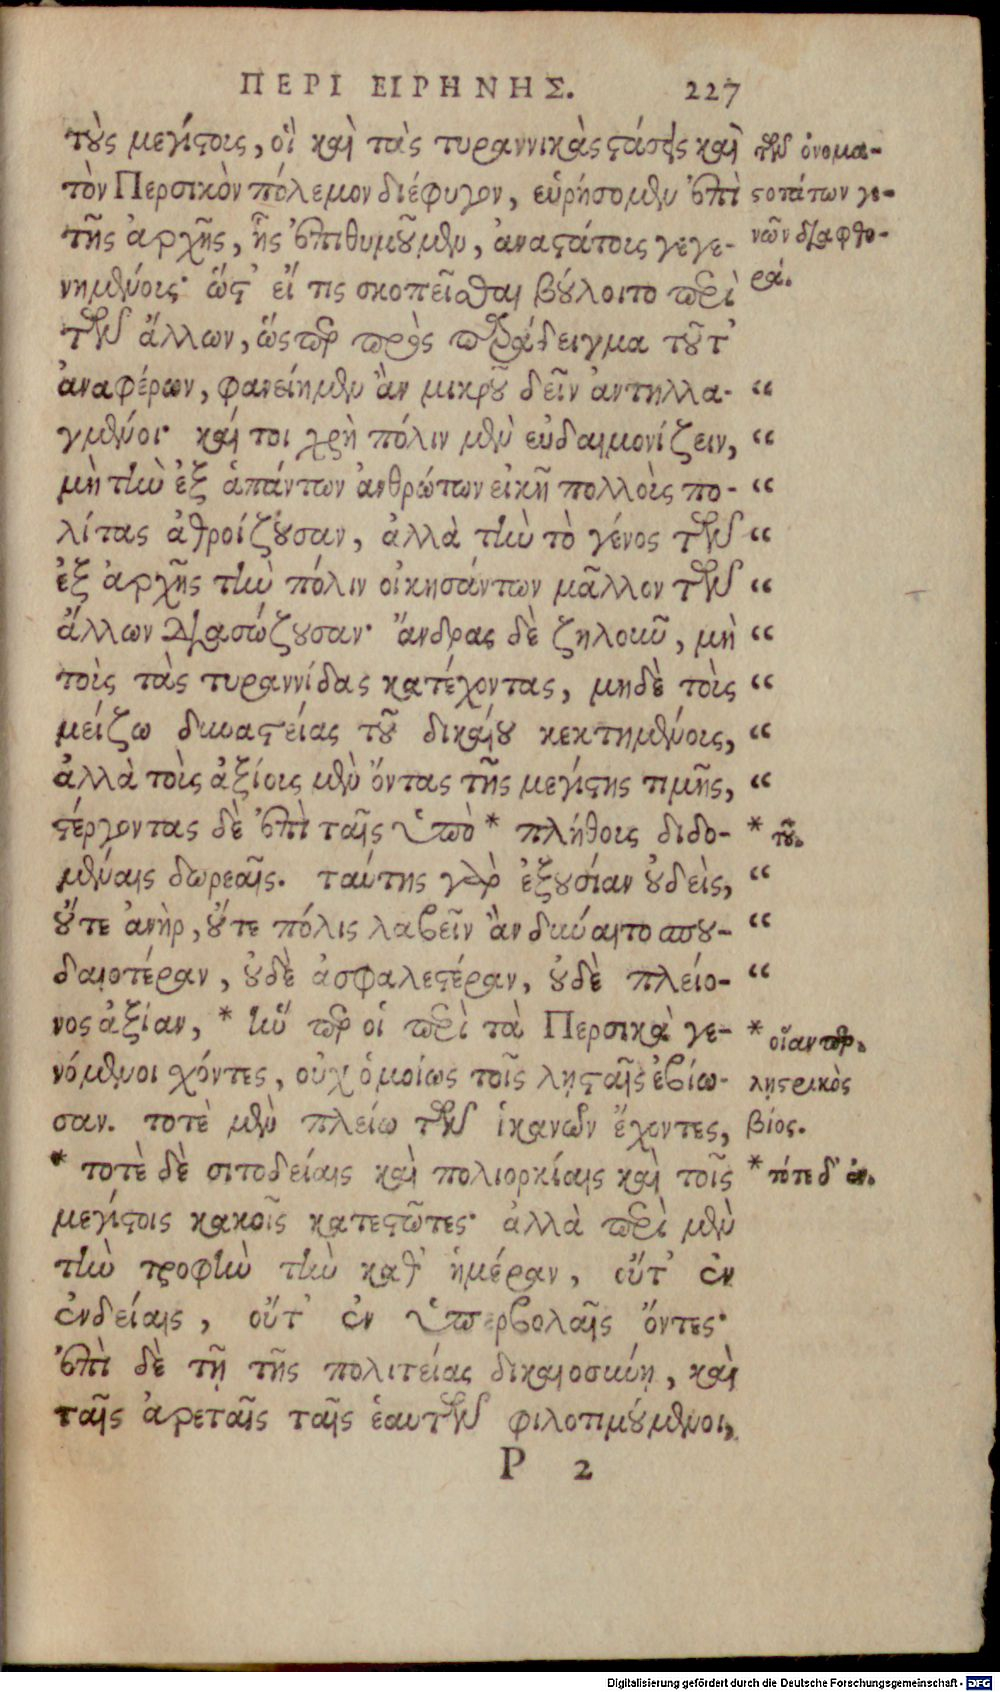 ΠΕΡΙ ΕΙΡΗΝΗΣ. 227
τοὺς μεγίστοις, οἳ καὶ τὰς τυραννικὰς στάσεις καὶ
τὸν Περσικὸν πόλεμον διέφυγον, εὑρήσομεν ἐπὶ
τῆς ἀρχῆς, ἧς ἐπιθυμοῦμεν, ἀναστάτοις γεγε-
νημένοις· ὥστ' εἴ τις σκοπεῖσθαι βούλοιτο περὶ
τῶν ἄλλων, ὥσπερ πρὸς παράδειγμα τοῦτ'
ἀναφέρων, φανείημεν ἂν μικροῦ δεῖν ἀντηλλα- “
γμένοι· καί τοι χρὴ πόλιν μὲν εὐδαιμονίζειν, “
μὴ τὴν ἐξ ἁπάντων ἀνθρώπων εἰκῆ πολλοὺς πο- “
λίτας ἀθροίζουσαν, ἀλλὰ τὴν τὸ γένος τῶν “
ἐξ ἀρχῆς τὴν πόλιν οἰκησάντων μᾶλλον τῶν “
ἄλλων διασώζουσαν· ἄνδρας δὲ ζηλοῦν, μὴ “
τοὺς τὰς τυραννίδας κατέχοντας, μηδὲ τοὺς “
μείζω δυναστείας τοῦ δικαίου κεκτημένοις, “
ἀλλὰ τοὺς ἀξίοις μὲν ὄντας τῆς μεγίστης τιμῆς, “
στέργοντας δὲ ἐπὶ ταῖς ὑπὸ * πλήθοις διδο-
μέναις δωρεαῖς. ταύτης γὰρ ἐξουσίαν οὐδεὶς, “
οὔτε ἀνὴρ, οὔτε πόλις λαβεῖν ἂν δύναιτο σπου- “
δαιοτέραν, οὐδὲ ἀσφαλεστέραν, οὐδὲ πλείο- “
νος ἀξίαν, * ἣν περ οἱ περὶ τὰ Περσικὰ γε-
νόμενοι χόντες, οὐχ ὁμοίως τοῖς λῃσταῖς ἐβίω-
σαν. τοτὲ μὲν πλείω τῶν ἱκανῶν ἔχοντες,
* τοτὲ δὲ σιτοδείαις καὶ πολιορκίαις καὶ τοῖς
μεγίστοις κακοῖς κατεστῶτες· ἀλλὰ περὶ μὲν
τὴν τροφὴν τὴν καθ' ἡμέραν, οὔτ' ἐν
ἐνδείαις, οὔτ' ἐν ὑπερβολαῖς ὄντες·
ἐπὶ δὲ τῇ τῆς πολιτείας δικαιοσύνῃ, καὶ
ταῖς ἀρεταῖς ταῖς ἑαυτῶν φιλοτιμούμενοι,
Ρ 2
τῶν ὀνομα-
στοτάτων γε-
νῶν διαφθο-
ρά.
* τοῦ.
* οἵαν περ.
λῃστρικὸς
βίος.
* τότε δ' ἐν.
Digitalisierung gefördert durch die Deutsche Forschungsgemeinschaft - DFG